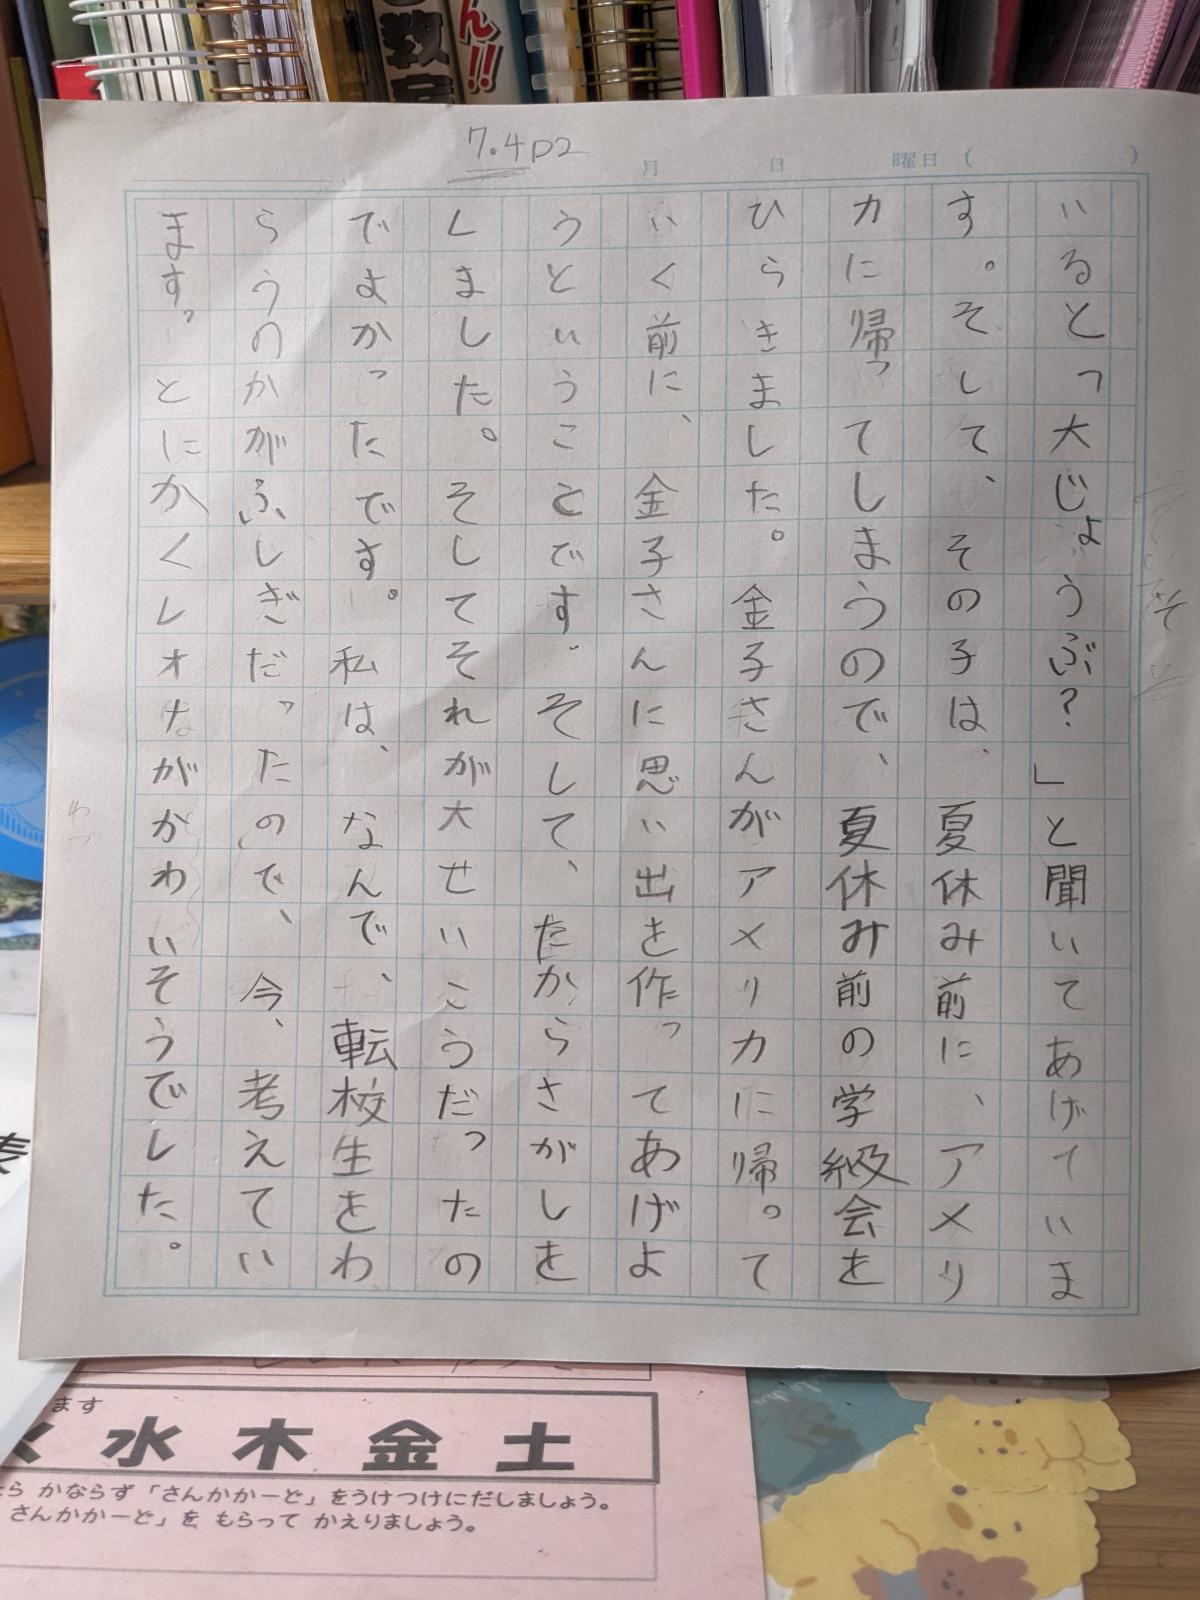 教室
ん!!
7.4 P2
月 日 曜日 ( )
いるとっ大じょうぶ?」と聞いてあげていま
す。そして、その子は、夏休み前に、アメリ
カに帰ってしまうので、夏休み前の学級会を
ひらきました。金子さんがアメリカに帰って
いく前に、金子さんに思い出を作ってあげよ
うということです。そして、だからさがしを
しました。そしてそれが大せいこうだったの
でよかったです。私は、なんで、転校生をわ
らうのかがふしぎだったので、今、考えてい
ます。とにかくレオナがかわいそうでした。
ます
水 木 金 土
ら かならず「さんかかーど」をうけつけにだしましょう。
さんかかーど」を もらって かえりましょう。